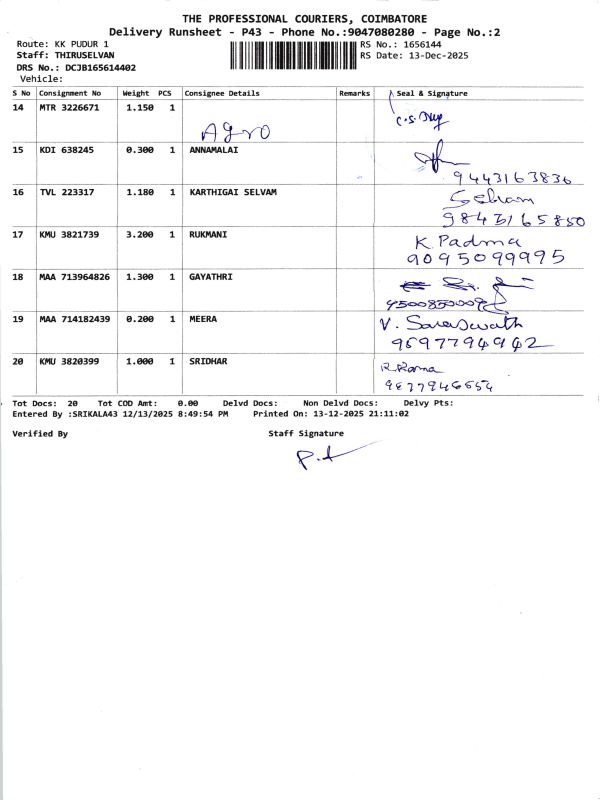 THE PROFESSIONAL COURIERS, COIMBATORE
Delivery Runsheet - P43 - Phone No.:9047080280 - Page No.:2
Route: KK PUDUR 1
RS No.: 1656144
Staff: THIRUSELVAN
RS Date: 13-Dec-2025
DRS No.: DCJB165614402
Vehicle:
S No Consignment No Weight PCS Consignee Details Remarks Seal & Signature
14 MTR 3226671 1.150 1
Agro
15 KDI 638245 0.300 1 ANNAMALAI
9443163836
16 TVL 223317 1.180 1 KARTHIGAI SELVAM Selvam
9843165850
17 KMU 3821739 3.200 1 RUKMANI K Padma
9095099995
18 MAA 713964826 1.300 1 GAYATHRI
19 MAA 714182439 0.200 1 MEERA V. Saraswath
20 KMU 3820399 1.000 1 SRIDHAR R. Rama
Tot Docs: 20 Tot COD Amt: 0.00 Delvd Docs: Non Delvd Docs: Delvy Pts:
Entered By :SRIKALA43 12/13/2025 8:49:54 PM Printed On: 13-12-2025 21:11:02
Verified By Staff Signature